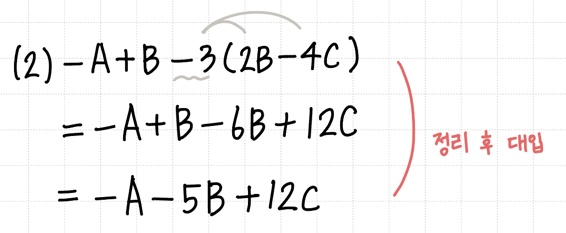 (2) -A+B-3(2B-4C)
= -A+B-6B+12C
정리 후 대입
= -A-5B+12C